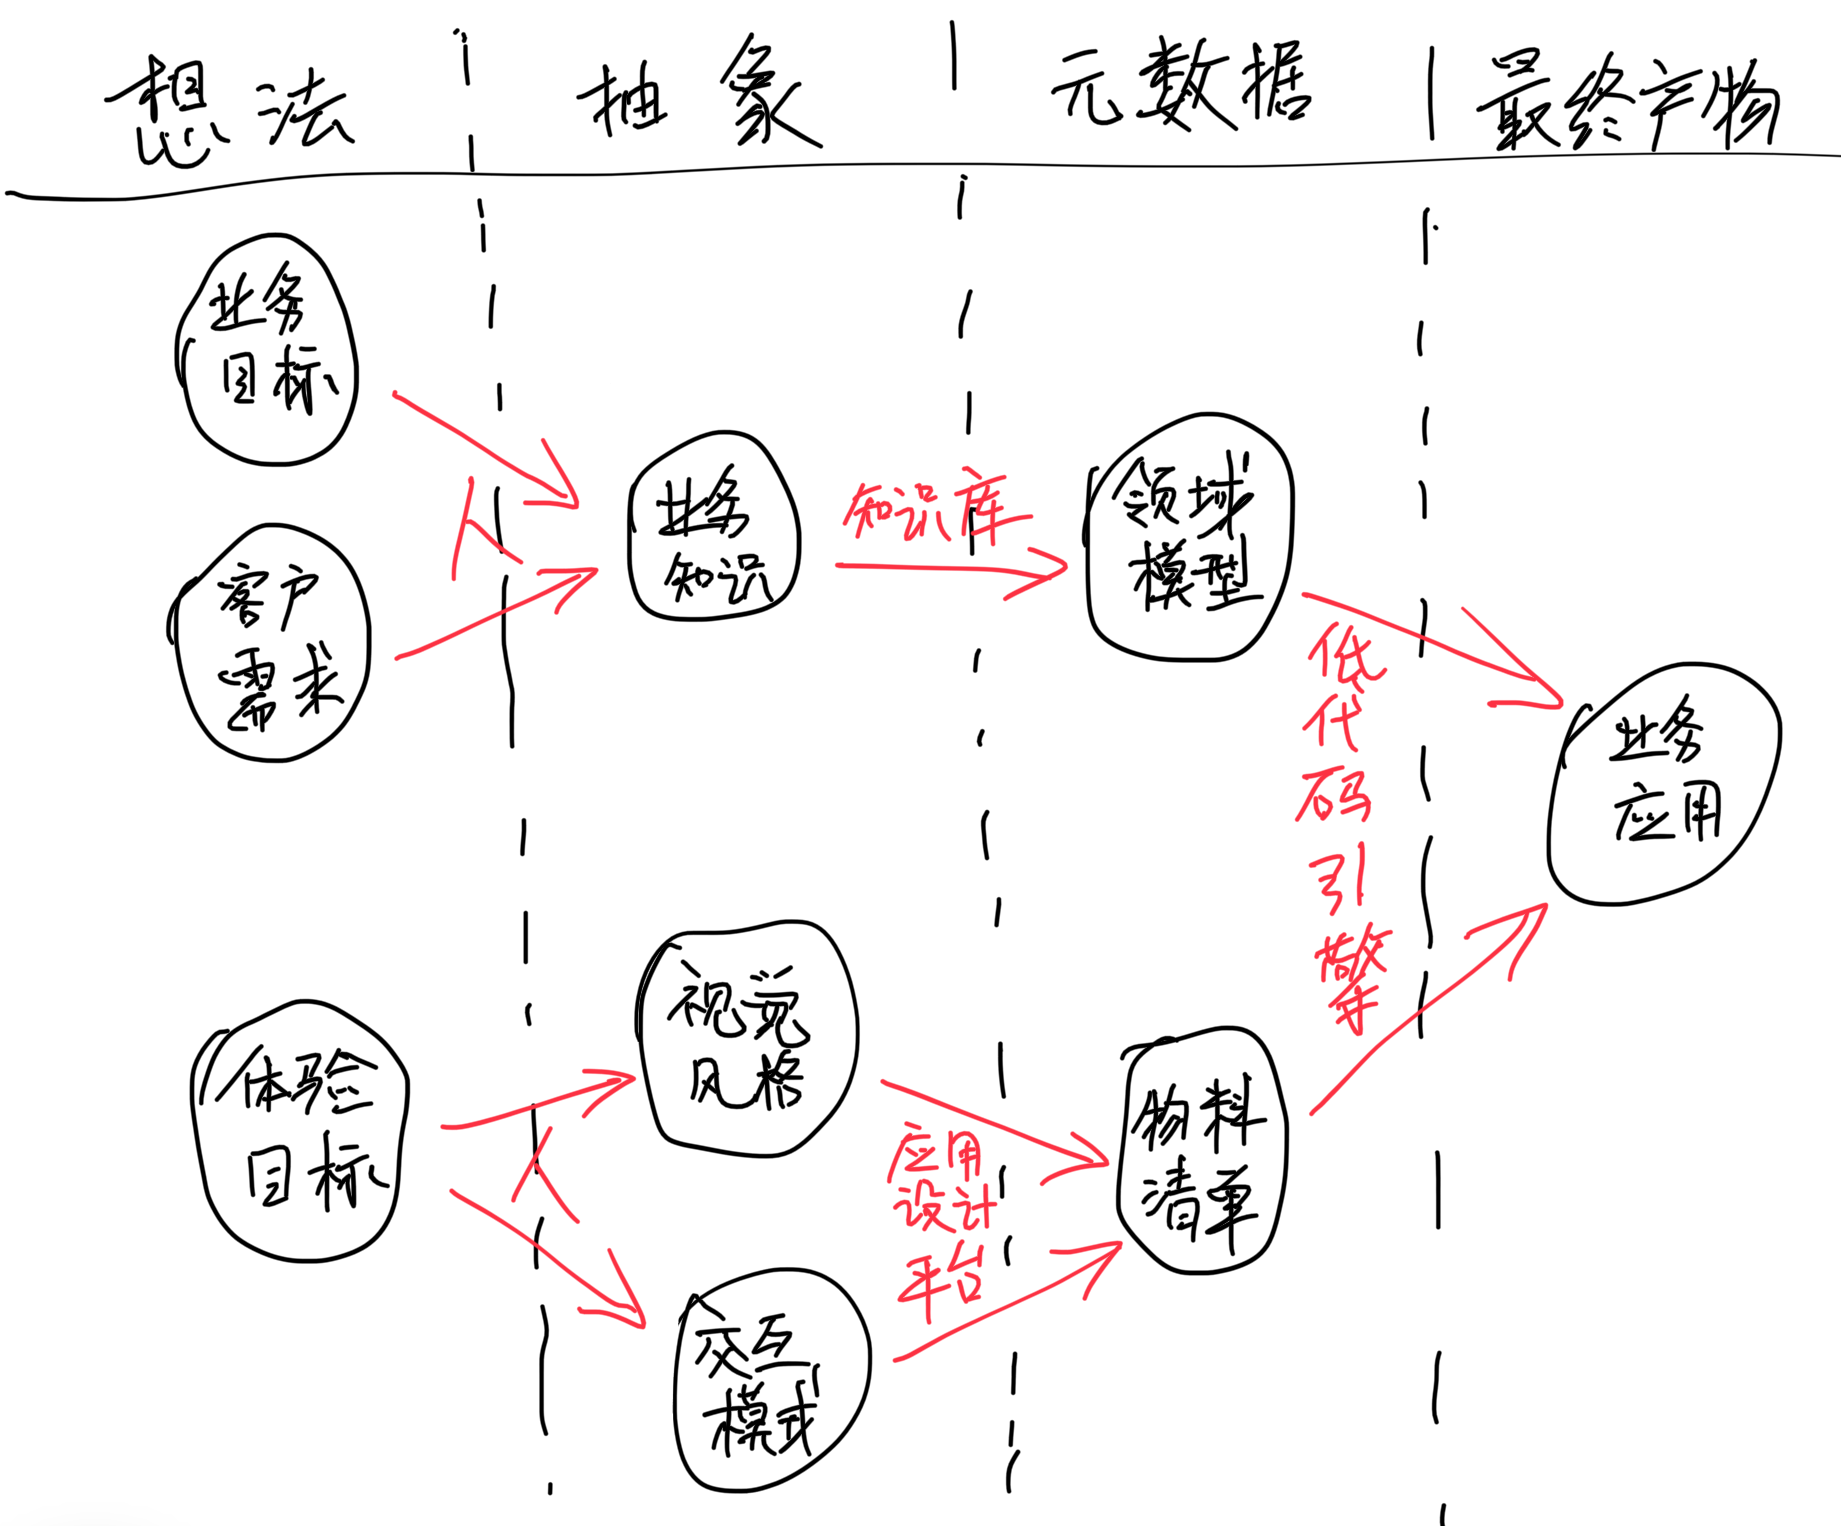 想法
抽象
元数据
最终产物
业务
目标
客户
需求
人
业务
知识
知识库
领域
模型
低
代
码
引
擎
业务
应用
体验
目标
人
视觉
风格
交互
模式
应用
设计
平台
物料
清单